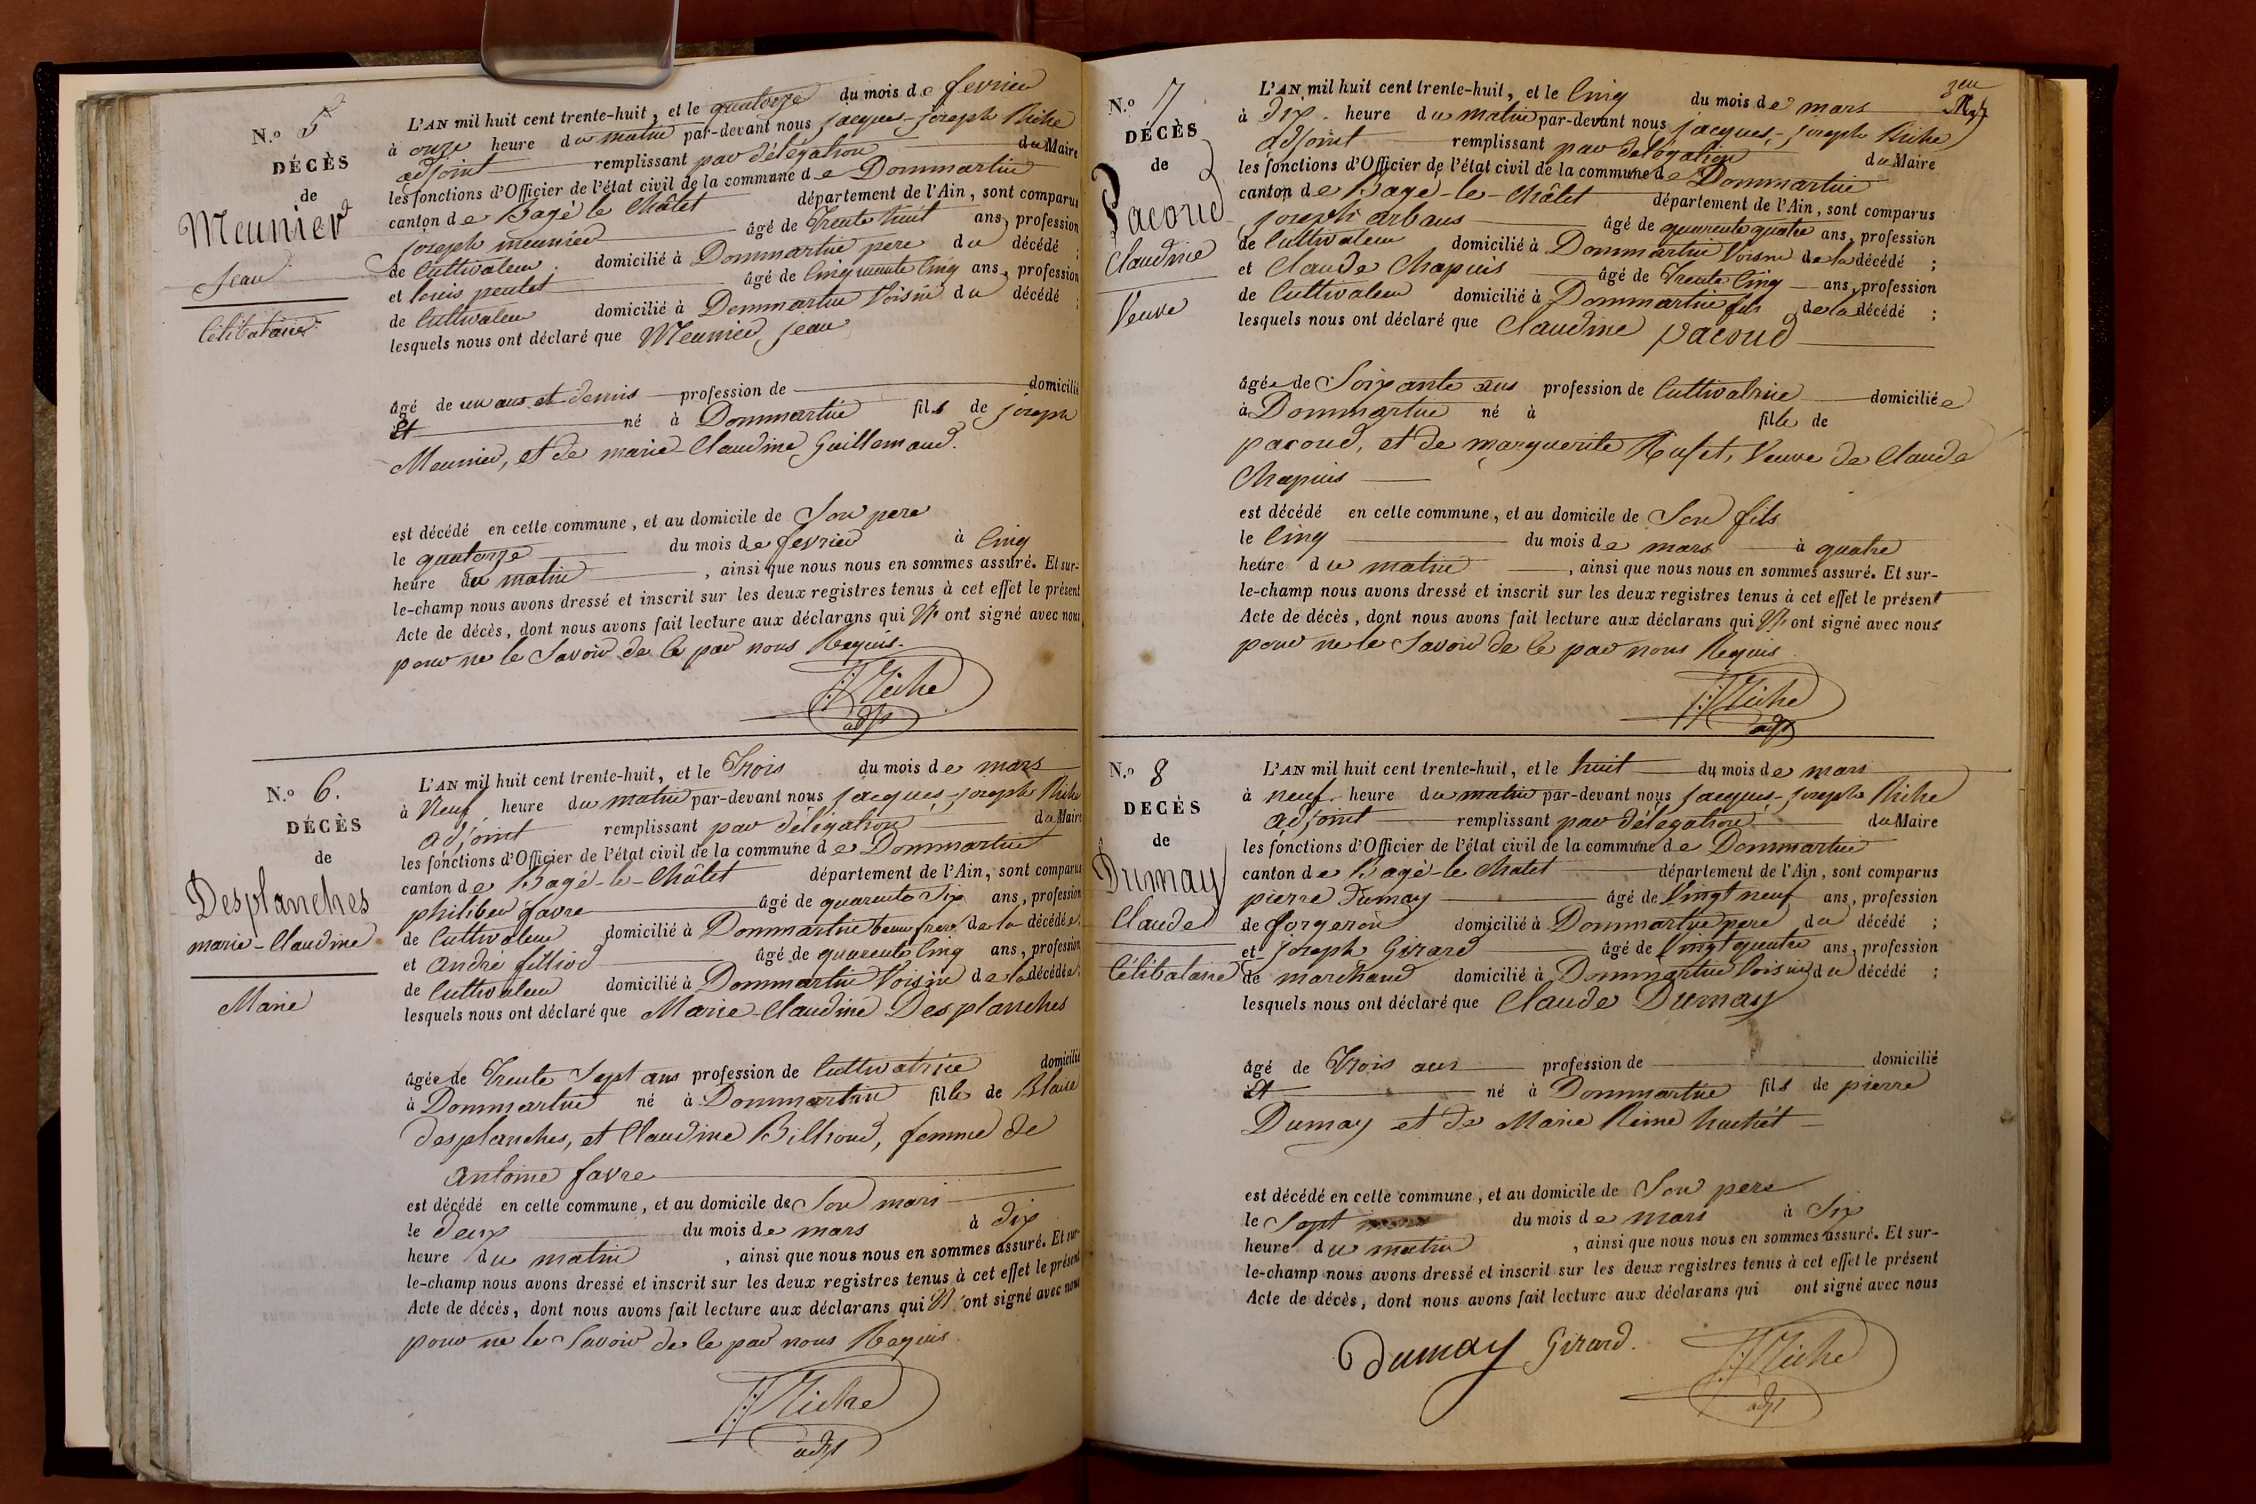 N.o 5
DÉCÈS
de
Meunier
Jean
Célibataire
L'AN mil huit cent trente-huit, et le quatorze du mois de fevrier
à onze heure du matin par-devant nous jacques-joseph Riche
adjoint remplissant par délégation du Maire
les fonctions d'Officier de l'état civil de la commune de Dommartin
canton de Bagé le Châtel département de l'Ain, sont comparus
joseph meunier âgé de Trente huit ans, profession
de Cultivateur domicilié à Dommartin pere du décédé ;
et louis âgé de Cinquante Cinq ans, profession
de Cultivateur domicilié à Dommartin Voisin du décédé ;
lesquels nous ont déclaré que Meunier, Jean
âgé de un ans et demis profession de domicilié
à né à Dommartin fils de joseph
Meunier, et de marie-Claudine Guillemaud.
est décédé en cette commune, et au domicile de Son pere
le quatorze du mois de fevrier à Cinq
heure du matin, ainsi que nous nous en sommes assuré. Et sur-
le-champ nous avons dressé et inscrit sur les deux registres tenus à cet effet le présent
Acte de décès, dont nous avons fait lecture aux déclarans qui N' ont signé avec nous
pour ne le Savoir de Ce par nous Requis.
J:J Riche
adjt
N.o 6.
DÉCÈS
de
Desplanches
marie-Claudine
Mariée
L'AN mil huit cent trente-huit, et le Trois du mois de mars
à Neuf heure du matin par-devant nous jacques-joseph Riche
adjoint remplissant par délégation du Maire
les fonctions d'Officier de l'état civil de la commune de Dommartin
canton de Bagé-le-Châtel département de l'Ain, sont comparus
philiber favre âgé de quarente Six ans, profession
de Cultivateur domicilié à Dommartin beau frere de la décédée ;
et andré fillion âgé de quarente Cinq ans, profession
de Cultivateur domicilié à Dommartin Voisin de la décédée ;
lesquels nous ont déclaré que Marie-Claudine Desplanches
âgée de Trente Sept ans profession de Cultivatrice domicilié
à Dommartin né à Dommartin fille de Blaise
desplanches, et Claudine Billioud, femme de
antoine favre
est décédé en cette commune, et au domicile de Son mari
le deux du mois de mars à dix
heure du matin, ainsi que nous nous en sommes assuré. Et sur-
le-champ nous avons dressé et inscrit sur les deux registres tenus à cet effet le présent
Acte de décès, dont nous avons fait lecture aux déclarans qui N' ont signé avec nous
pour ne le Savoir de Ce par nous Requis.
J:J Riche
adjt
N.o 7
DÉCÈS
de
Pacoud
Claudine
Veuve
L'AN mil huit cent trente-huit, et le Cinq du mois de mars
à Dix heure du matin par-devant nous jacques-joseph Riche
adjoint remplissant par délégation du Maire
les fonctions d'Officier de l'état civil de la commune de Dommartin
canton de Bagé-le-Châtel département de l'Ain, sont comparus
joseph arbans âgé de quarente quatre ans, profession
de Cultivateur domicilié à Dommartin Voisin de la décédé ;
et Claude Chapuis âgé de Trente Cinq ans, profession
de Cultivateur domicilié à Dommartin fils de la décédé ;
lesquels nous ont déclaré que Claudine pacoud
âgée de Soixante ans profession de Cultivatrice domiciliée
à Dommartin né à fille de
pacoud, et de marguerite Veuve de Claude
Chapuis
est décédé en cette commune, et au domicile de Son fils
le Cinq du mois de mars à quatre
heure du matin, ainsi que nous nous en sommes assuré. Et sur-
le-champ nous avons dressé et inscrit sur les deux registres tenus à cet effet le présent
Acte de décès, dont nous avons fait lecture aux déclarans qui N' ont signé avec nous
pour ne le Savoir de Ce par nous Requis.
J:J Riche
adjt
N.o 8
DÉCÈS
de
Dumay
Claude
Célibataire
L'AN mil huit cent trente-huit, et le huit du mois de mars
à neuf heure du matin par-devant nous jacques-joseph Riche
adjoint remplissant par délégation du Maire
les fonctions d'Officier de l'état civil de la commune de Dommartin
canton de Bagé-le Chatel département de l'Ain, sont comparus
pierre Dumay âgé de Vingt neuf ans, profession
de forgeron domicilié à Dommartin pere du décédé ;
et joseph Girard âgé de Vingt quatre ans, profession
de marchand domicilié à Dommartin Voisin du décédé ;
lesquels nous ont déclaré que Claude Dumay
âgé de Trois ans profession de domicilié
à né à Dommartin fils de pierre
Dumay et de Marie Reine huchet
est décédé en cette commune, et au domicile de Son pere
le Sept du mois de mars à Six
heure du matin, ainsi que nous nous en sommes assuré. Et sur-
le-champ nous avons dressé et inscrit sur les deux registres tenus à cet effet le présent
Acte de décès, dont nous avons fait lecture aux déclarans qui ont signé avec nous
Dumay Girard.
J:J Riche
adjt